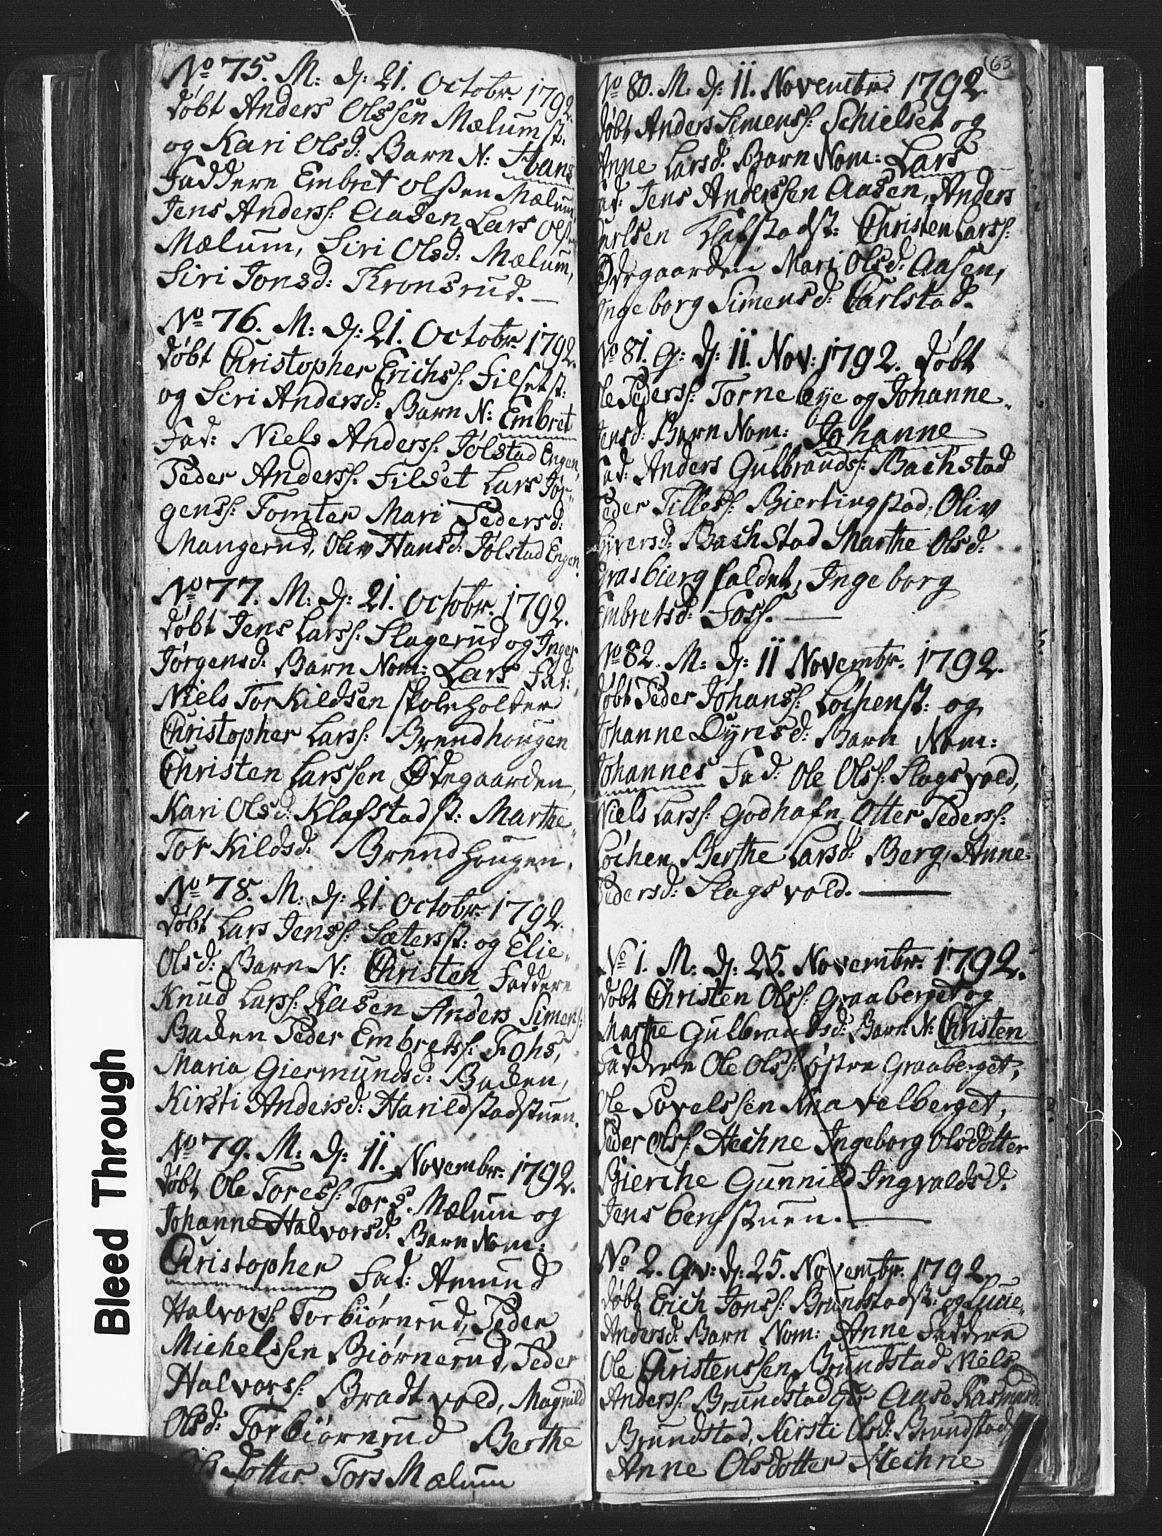 No 75. M: d: 21. Octobr. 1792
døbt Anders Olssen Mælumst:
og Kari Olsd: Barn N: Hans
Faddere Embret Olssen Mælum
Jens Anderss: Aasen, Lars Ols
Mælum, Siri Olsd: Mælum,
Siri Jonsd: Kronsrud.
No 76. M: d: 21. Octobr. 1792.
døbt Christopher Erichss: Filsetst:
og Siri Andersd: Barn N: Embret
Fad: Niels Anderss: Jølstad Engen,
Peder Anderss: Filset Lars Jør-
genss: Tomter Mari Pedersd:
Mangerud, Oliv Hansd: Jølstad Engen.
No 77. M: d: 21. Octobr. 1792.
døbt Jens Larss: Slagerud og Inger
Jørgensd: Barn Nom: Lars Fad:
Niels Torkildsen skoleholder
Christopher Larss: Brendhougen
Christen Larssen Ødegaarden,
Kari Olsd: Klafstadst: Marthe
Torkildsd: Brendhougen.
No 78. M: d: 21. Octobr. 1792.
døbt Lars Jenss: Sæterst: og Elie
Olsd: Barn N: Christen Faddere
Knud Larss: Aasen Anders Simens:
Baden Peder Embretss: Fohs,
Maria Giermundsd: Baden,
Kirsti Andersd: Harildstadstuen.
No 79. M. d: 11. Novembr. 1792.
døbt Ole Toress: Tors Mælum og
Johanne Halvorsd: Barn Nom:
Christopher Fad: Amund
Halvorss: Torbiørnrud, Peder
Michelssen Biørnerud, Peder
Halvorss: Bradtvold, Magnild
Olsd: Torbiørnrud Berthe
Olsdotter Tors Mælum
63
No 80. M. d: 11. Novembr. 1792
døbt Anders Simenss: Schielset og
Anne Larsd: Barn Nom: Lars
Fad: Jens Anderssen Aasen, Anders
Carlsen Klafstadst: Christen Larss:
Ødegaarden Mari Olsd: Aasen,
Ingeborg Simensd: Carlstad.
No 81. G: d: 11. Nov: 1792. døbt
Ole Pederss: Tornebye og Johanne
Jensd: Barn Nom: Johanne
Fad: Anders Gulbrandss: Bachstad
Peder Tilless: Bierlingstad, Oliv
Syversd: Bachstad Marthe Olsd:
Grasbierg faldet, Ingeborg
Embretsd: Foss.
No 82. M. d: 11 Novembr. 1792.
døbt Peder Johanss: Løchenst: og
Johanne Dyresd: Barn Nom:
Johannes Fad: Ole Olss: Slagsvold,
Niels Larss: Godhafn Otter Pederss:
Løchen, Berthe Larsd: Berg, Anne
Pedersd: Slagsvold.
No 1. M. d: 25. Novembr. 1792.
døbt Christen Olss: Graaberget og
Marthe Gulbrandsd: Barn N: Christen
Faddere Ole Olss: østre Graaberget,
Ole Sovelssen Knavelberget,
Peder Olss: Hechne Ingeborg Olsdotter
Bierche Gunnild Ingvaldsd.
Jens bergstuen.
No 2. Gv: d: 25. Novembr. 1792
døbt Erich Jonss: Brundstadst: og Lucie
Andersd: Barn Nom: Anne Faddere
Ole Christenssen Brundstad Niels
Anderss: Brundstad Eie Aase Rasmusd:
Brundstad, Kirsti Olsd: Brundstad,
Anne Olsdotter Hechne
Bleed Through